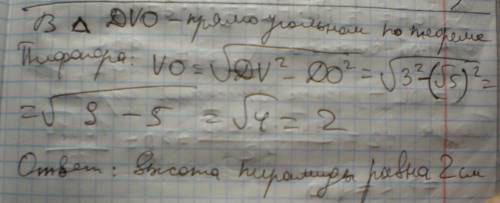 В Δ DVO – прямоугольном по теореме
Пифагора: VO = √DV² – DO² = √3² – (√5)² =
= √9 – 5 = √4 = 2
Ответ: высота пирамиды равна 2 см